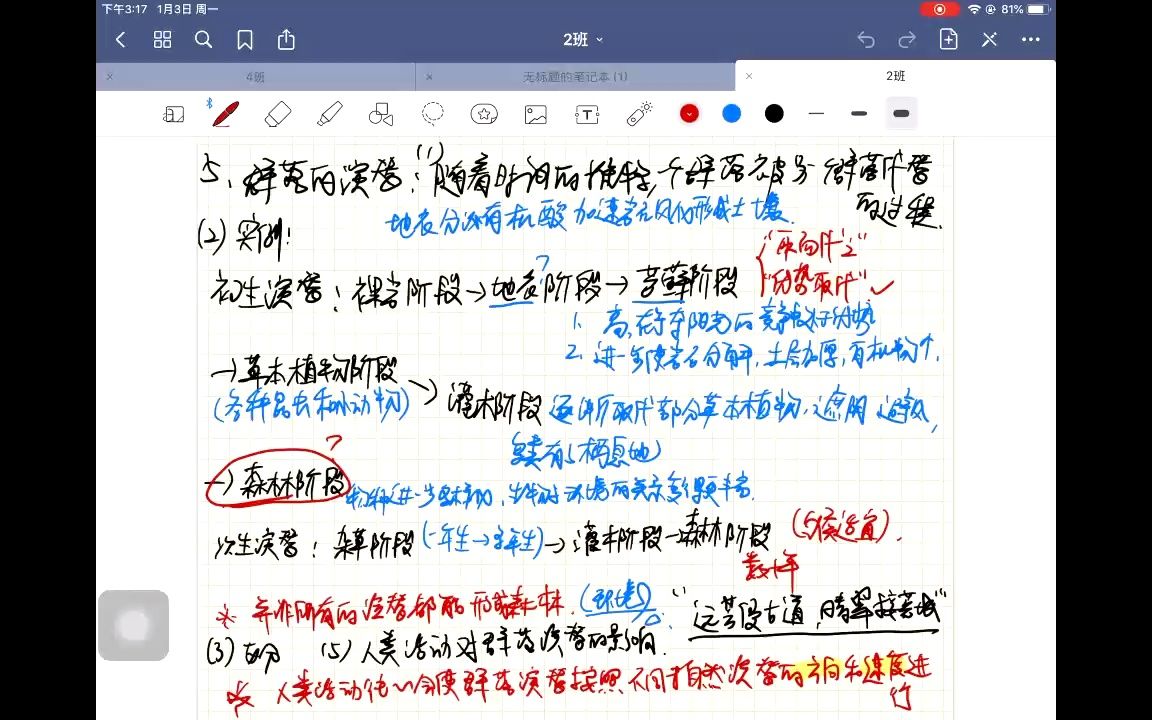 下午3:17 1月3日 周一
81%
2班
4班
无标题的笔记本 (1)
2班
5、群落的演替：(1) 随着时间的推移，一个群落被另一群落代替
的过程.
地衣分泌有机酸加速岩石风化形成土壤.
(2) 实例：
初生演替：裸岩阶段→地衣阶段→苔藓阶段
?
"优势取代" ✓
1. 高,在争夺阳光的竞争中占优势
2. 进一步使岩石分解,土层加厚,有机物个,
→草本植物阶段
(各种昆虫和小动物)
→灌木阶段
逐渐取代部分草本植物,遮阴、避风,
鸟类有(栖息地)
?
→森林阶段
物种进一步,生物对环境的关系多样丰富.
次生演替：杂草阶段(一年生→多年生)→灌木阶段→森林阶段
(气候适宜).
数十年
※ 并非所有的演替都能形成森林. (环境)
"远芳侵古道,晴翠接荒城"
(3) (5) 人类活动对群落演替的影响.
※ 人类活动往往会使群落演替按照不同于自然演替的方向和速度进
行